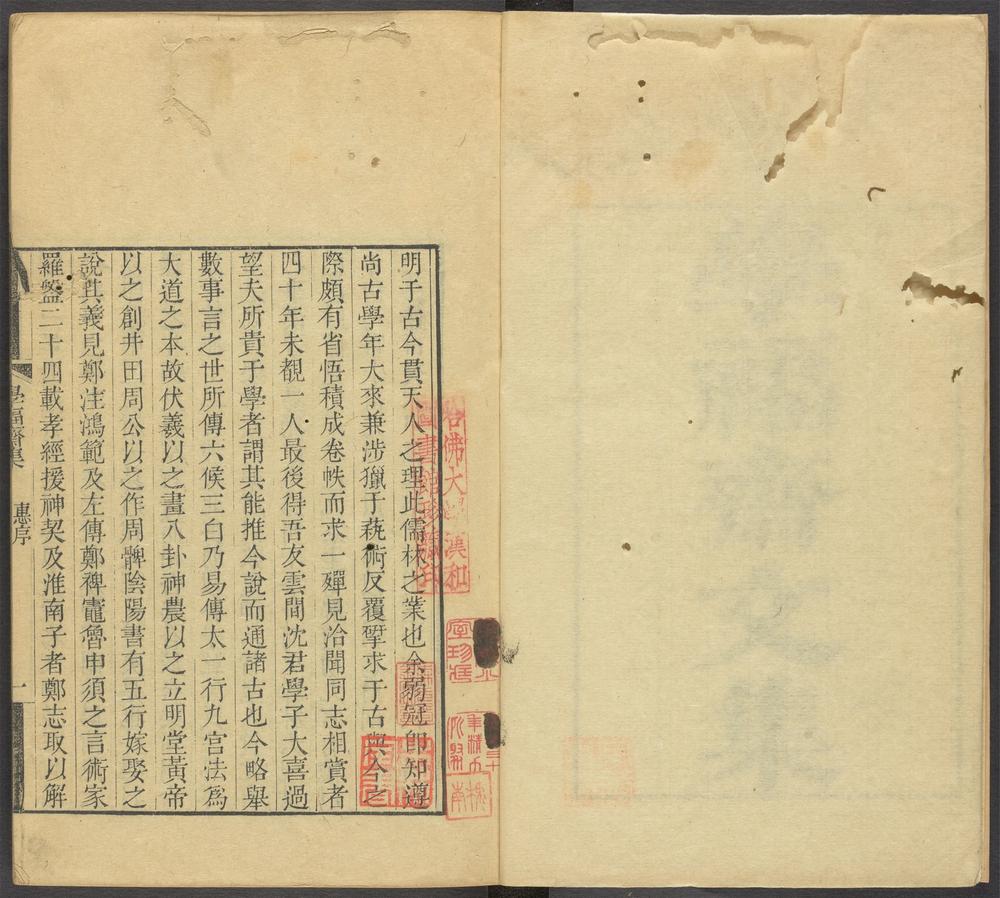 明于古今貫天人之理此儒林之業也余弱冠卽知遵
尚古學年大來兼涉獵于蓺術反覆擘求于古與今之
際頗有省悟積成卷帙而求一殫見洽聞同志相賞者
四十年未覩一人最後得吾友雲間沈君學子大喜過
望夫所貴于學者謂其能推今說而通諸古也今略舉
數事言之世所傳六候三白乃易傳太一行九宮法爲
大道之本故伏羲以之畫八卦神農以之立明堂黃帝
以之創井田周公以之作周髀陰陽書有五行嫁娶之
說其義見鄭注鴻範及左傳鄭裨竈魯申須之言術家
羅盤二十四載孝經援神契及淮南子者鄭志取以解
學福齋集
惠序
一
哈佛大學漢和
圖書館珍藏印